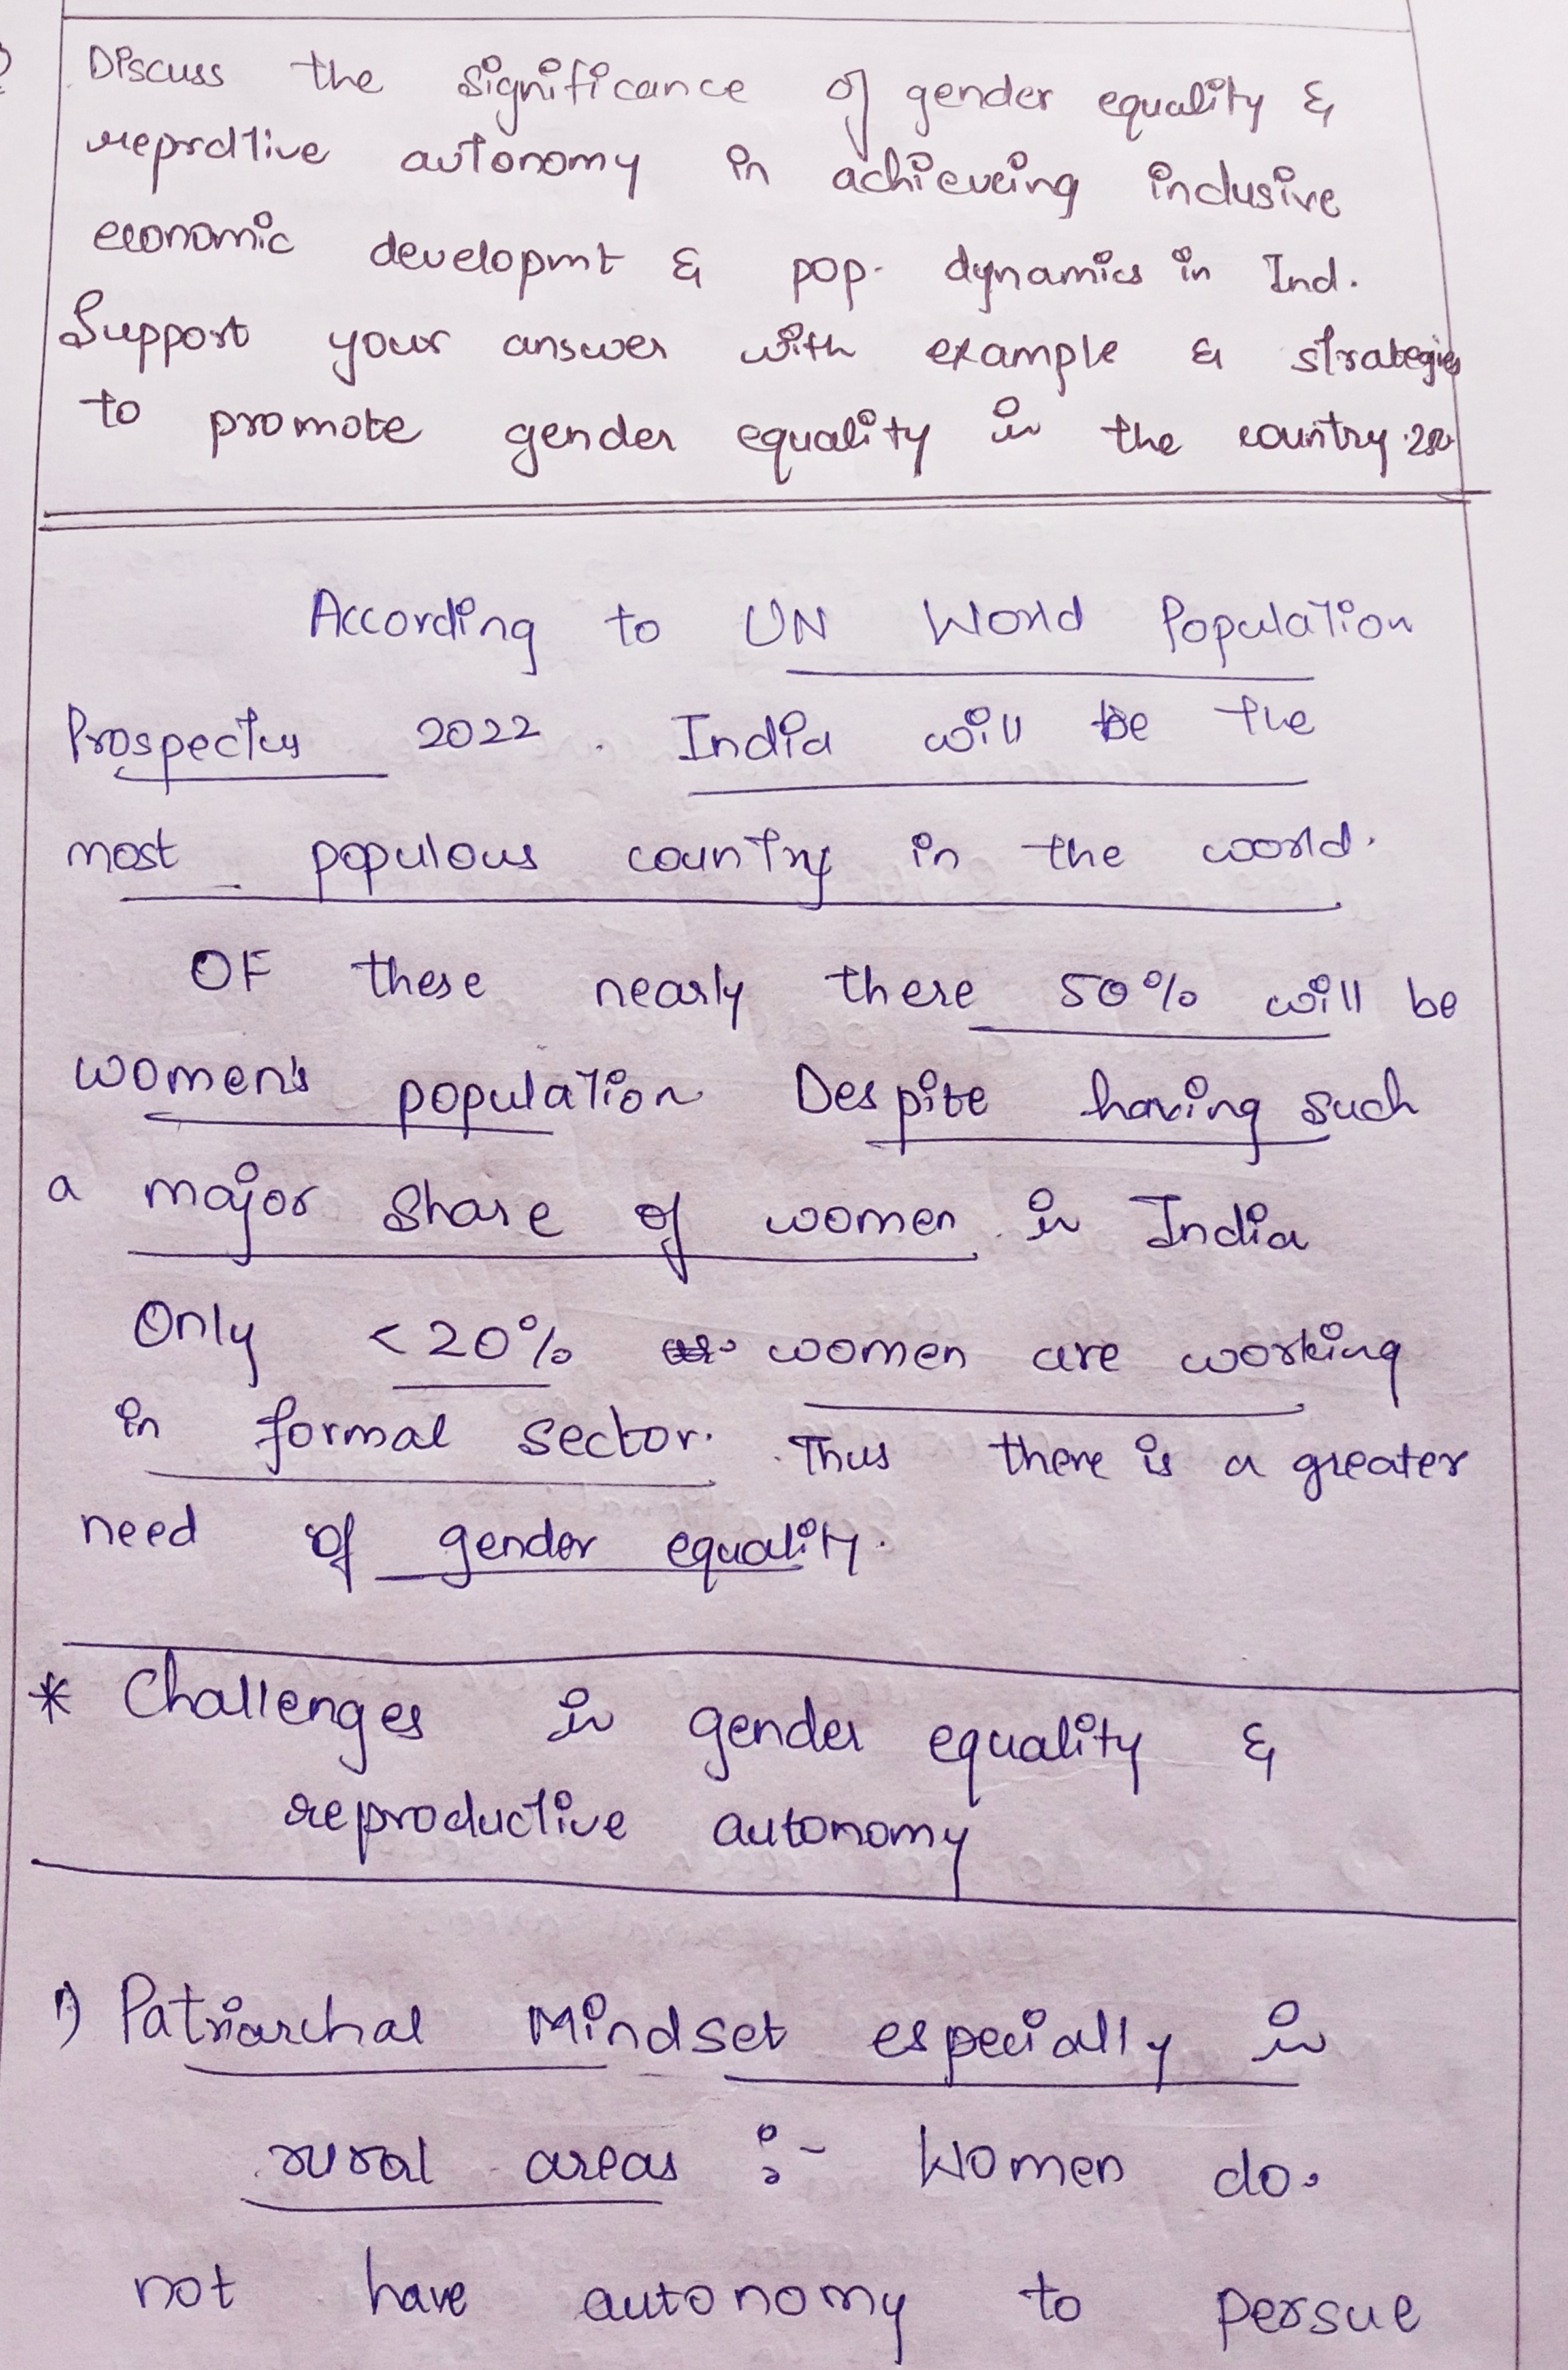 Discuss the significance of gender equality &
reprdtive autonomy in achieveing inclusive
economic developmt & pop. dynamics in Ind.
Support your answer with example & strategies
to promote gender equality in the country.
According to UN World Population
Prospectus 2022. India will be the
most populous country in the world.
OF these nearly there 50% will be
women's population. Despite having such
a major share of women in India
Only <20% women are working
in formal sector. Thus there is a greater
need of gender equality.
* Challenges in gender equality &
reproductive autonomy
1) Patriarchal Mindset especially in
rural areas :- Women do
not have autonomy to persue